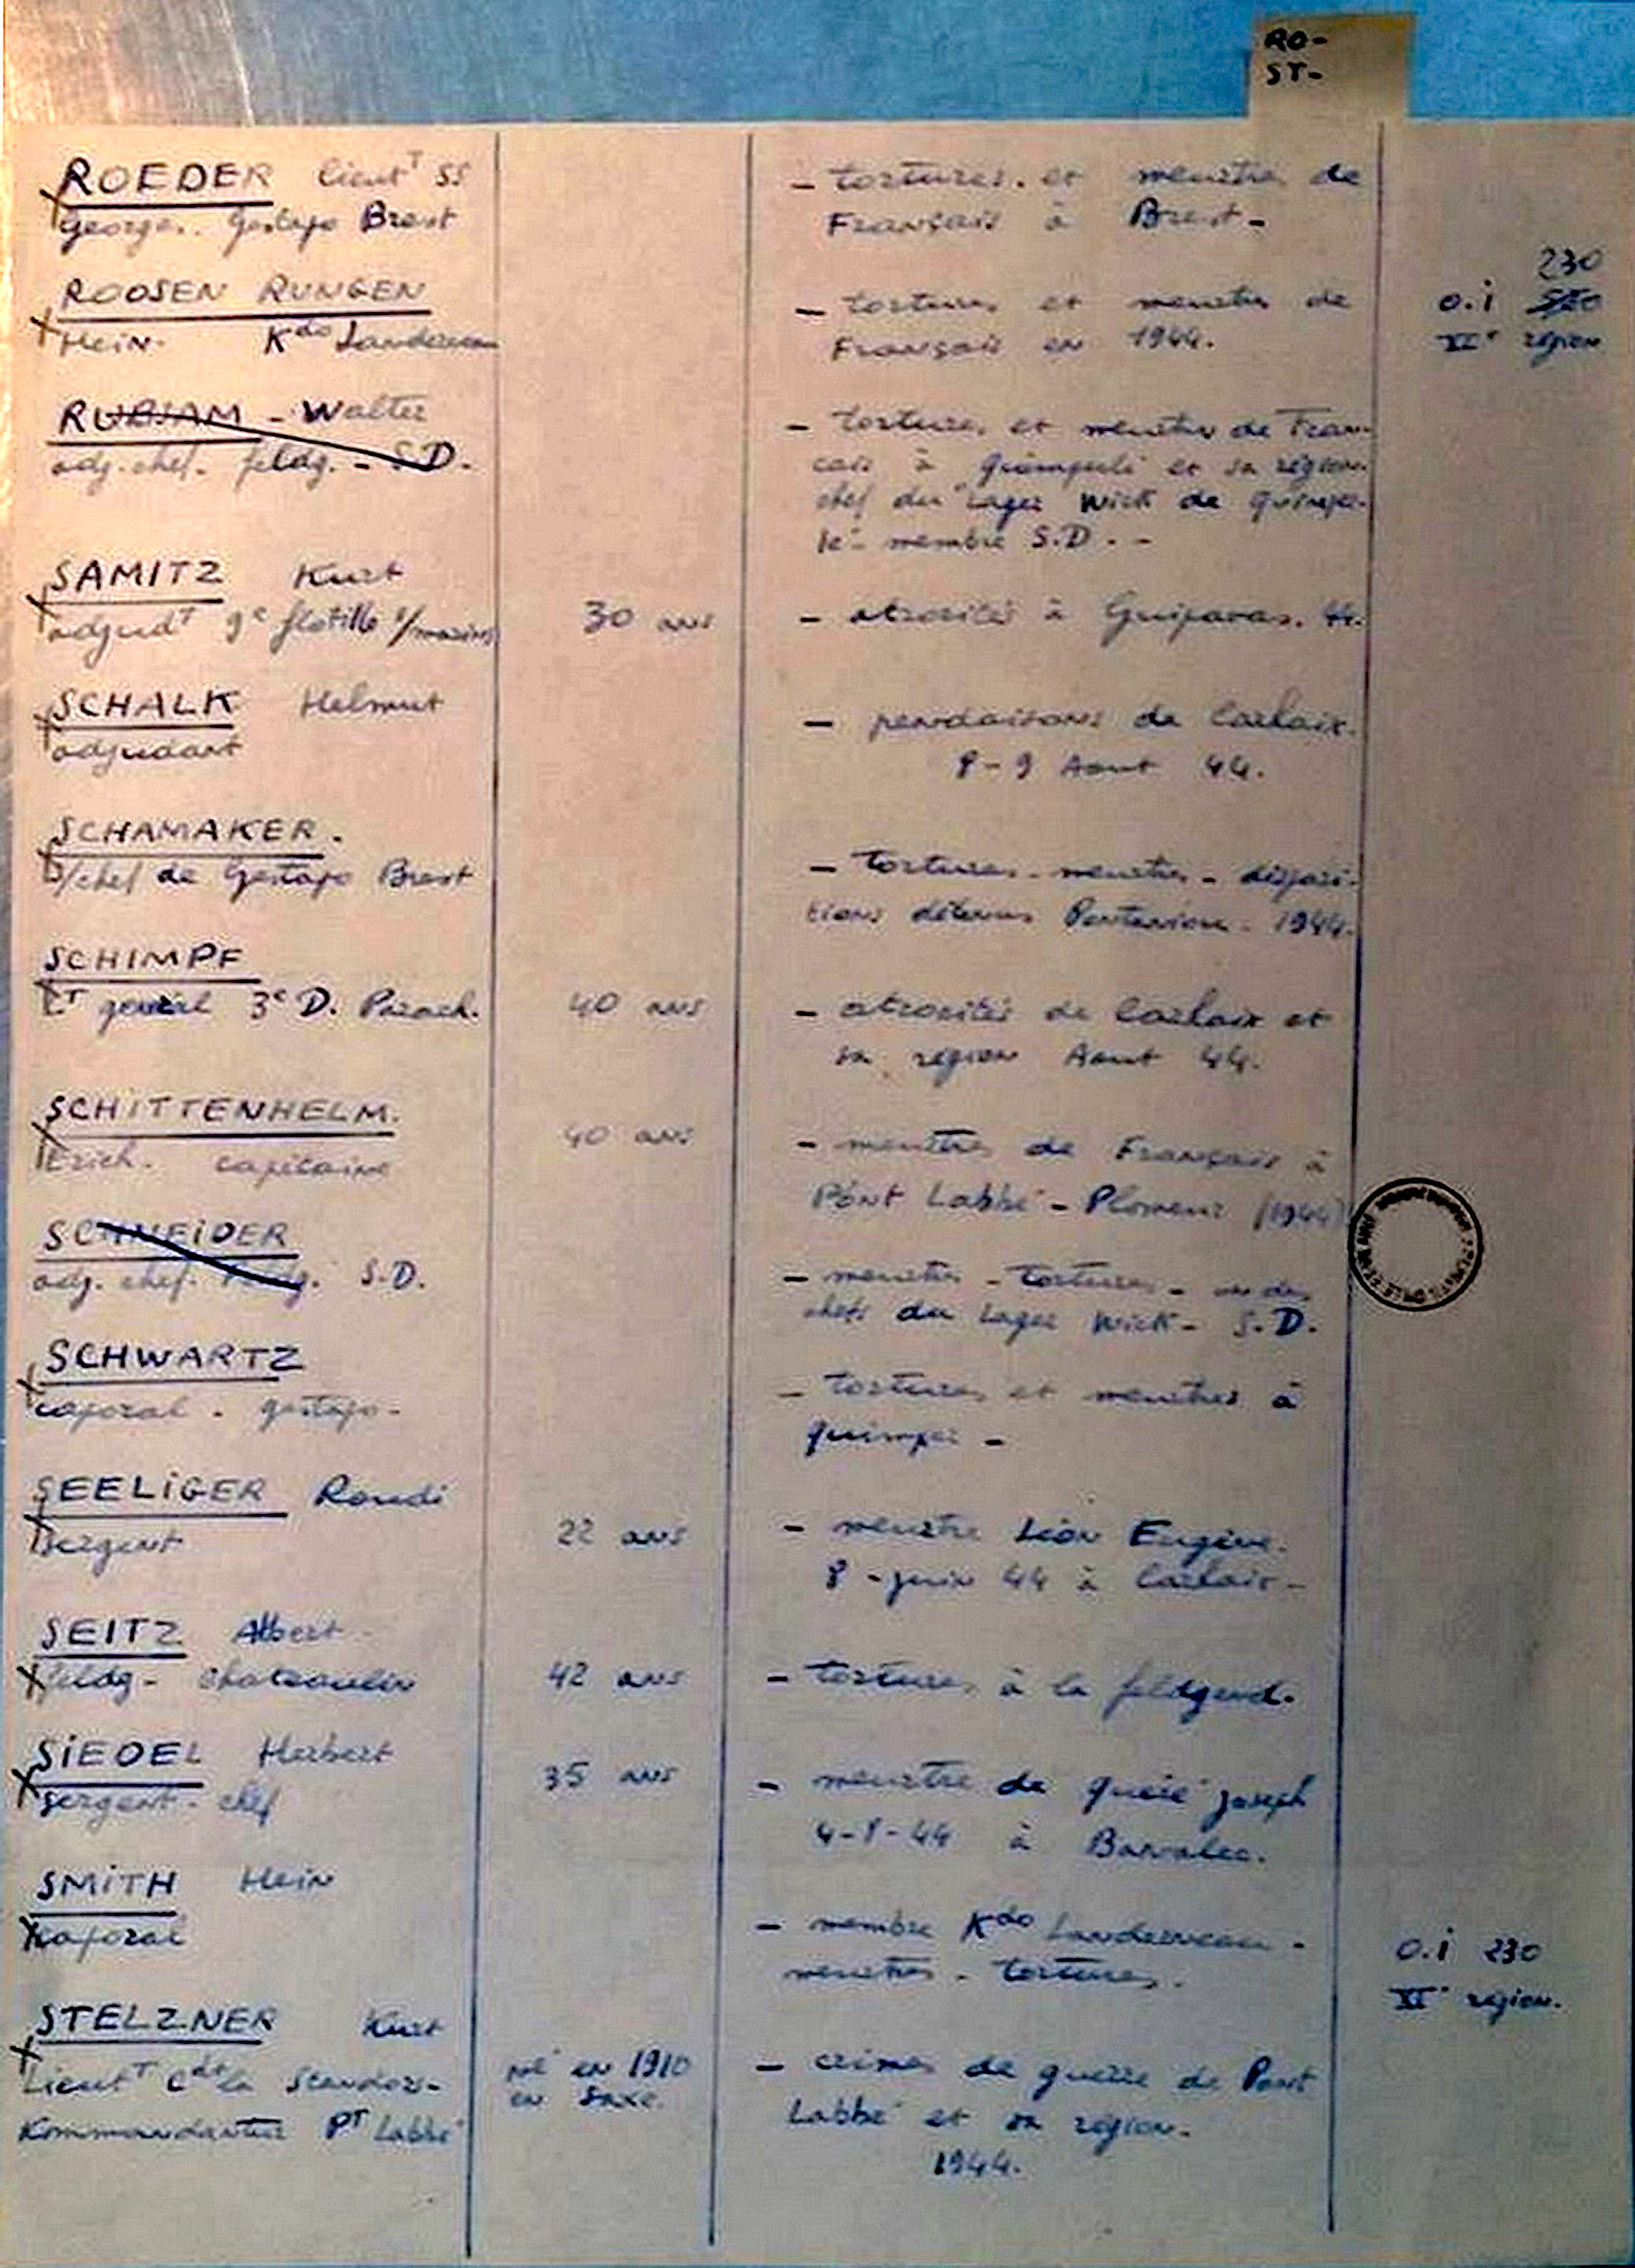 RO-
ST-
ROEDER lieutT SS
George. Gestapo Brest
- tortures. et meurtres de
Français à Brest -
ROOSEN RUNGEN
Hein. Kdo Landerneau
- tortures et meurtres de
Français en 1944.
230
O.i
XIe région
RUBSAM - Walter
adj. chef. feldg. - S.D.
- tortures et meurtres de Fran-
çais à Quimperlé et sa région
chef du Lager Wick de Quimper-
lé - membre S.D. -
SAMITZ Kurt
adjudT 9e flotille s/marins
30 ans
- atrocités à Guipavas. 44.
SCHALK Helmut
adjudant
- pendaisons de Carhaix.
8-9 Aout 44.
SCHAMAKER.
s/chef de Gestapo Brest
- tortures - meurtres - dispari-
tions détenus Pontaniou - 1944.
SCHIMPF
LT général 3e D. Parach.
40 ans
- atrocités de Carhaix et
sa région Aout 44.
SCHITTENHELM.
Erich. capitaine
40 ans
- meurtres de Français à
Pont Labbé - Plomeur (1944)
SCHNEIDER
adj. chef. feldg. S.D.
- meurtres - tortures - un des
chefs du Lager Wick - S.D.
SCHWARTZ
caporal - gestapo -
- tortures et meurtres à
Quimper -
SEELIGER Roudi
sergent
22 ans
- meurtre Léon Eugène.
8 - juin 44 à Carhaix -
SEITZ Albert
feldg - Chateaulin
42 ans
- tortures à la feldgend.
SIEDEL Herbert
sergent - chef
35 ans
- meurtre de Quéré Joseph
4-8-44 à
SMITH Hein
caporal
- membre Kdo Landerneau -
meurtres - tortures.
O.i 230
XIe région.
STELZNER Kurt
LieutT Cdt la Standor-
Kommandantur PT Labbé
né en 1910
en Saxe.
- crimes de guerre de Pont
Labbé et sa région.
1944.